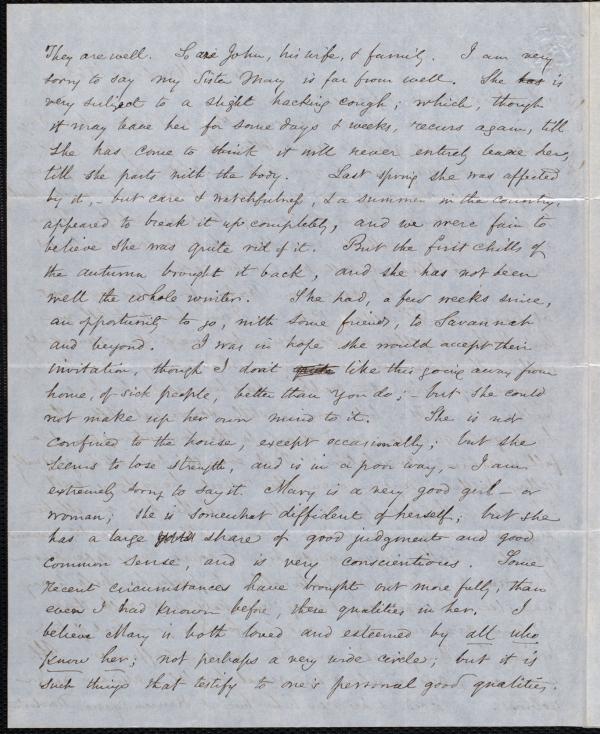 They are well. So are John, his wife, & family. I am very
sorry to say my Sister Mary is far from well. She has is
very subject to a slight hacking cough; which, though
it may leave her for some days & weeks, recurs again, till
she has come to think it will never entirely leave her,
till she parts with the body. Last spring she was affected
by it, - but care & watchfulness, & a summer in the country,
appeared to break it up completely, and we were fain to
believe she was quite rid of it. But the first chills of
the autumn brought it back, and she has not been
well the whole winter. She had, a few weeks since,
an opportunity to go, with some friends, to Savannah
and beyond. I was in hope she would accept their
invitation, though I don't quite like this going away from
home, of sick people, better than you do; - but she could
not make up her own mind to it. She is not
confined to the house, except occasionally; but she
seems to lose strength, and is in a poor way, - I am
extremely sorry to say it. Mary is a very good girl - or
woman; she is somewhat diffident of herself; but she
has a large share of good judgment and good
common sense, and is very conscientious. Some
recent circumstances have brought out more fully, than
even I had known before, these qualities in her. I
believe Mary is both loved and esteemed by all who
know her; not perhaps a very wide circle; but it is
such things that testify to one's personal good qualities.